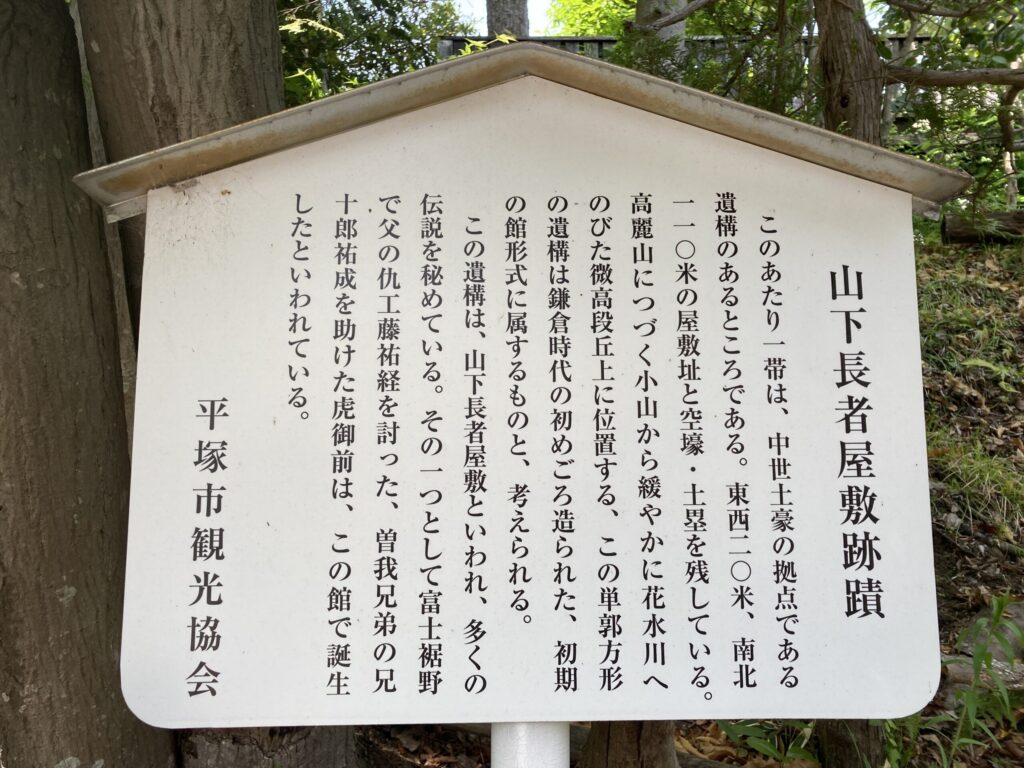 山下長者屋敷跡蹟
このあたり一帯は、中世土豪の拠点である
遺構のあるところである。東西二〇米、南北
一一〇米の屋敷址と空壕・土塁を残している。
高麗山につづく小山から緩やかに花水川へ
のびた微高段丘上に位置する、この単郭方形
の遺構は鎌倉時代の初めごろ造られた、初期
の館形式に属するものと、考えられる。
この遺構は、山下長者屋敷といわれ、多くの
伝説を秘めている。その一つとして富士裾野
で父の仇工藤祐経を討った、曽我兄弟の兄
十郎祐成を助けた虎御前は、この館で誕生
したといわれている。
平塚市観光協会